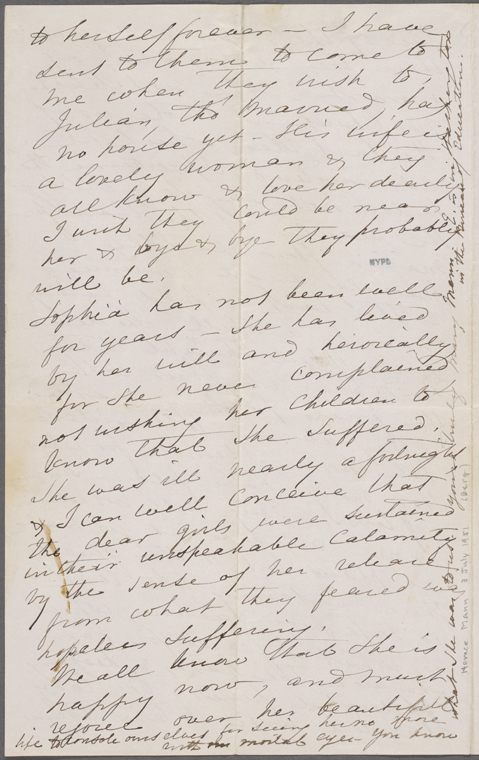 to herself forever – I have
sent to them to come to
me when they wish to.
Julian, tho' married, has
no house yet – His wife is
a lovely woman & they
all know & love her dearly
I wish they could be near
her & bye & bye they probably
will be.
NYPL
Sophia has not been well
for years – She has lived
by her will and heroically
for she never complained
not wishing her children to
know that she suffered.
She was ill nearly a fortnight
& I can well conceive that
the dear girls were sustained
in their unspeakable calamity
by the sense of her release
from what they feared was
hopeless suffering.
We all know that she is
happy now, and must
rejoice over her beautiful
life to console ourselves for seeing her no more
with mortal eyes – You know
what she was to us. Yours truly Mary Mann
in the education.
Horace Mann 3 July 1951
(Berg)